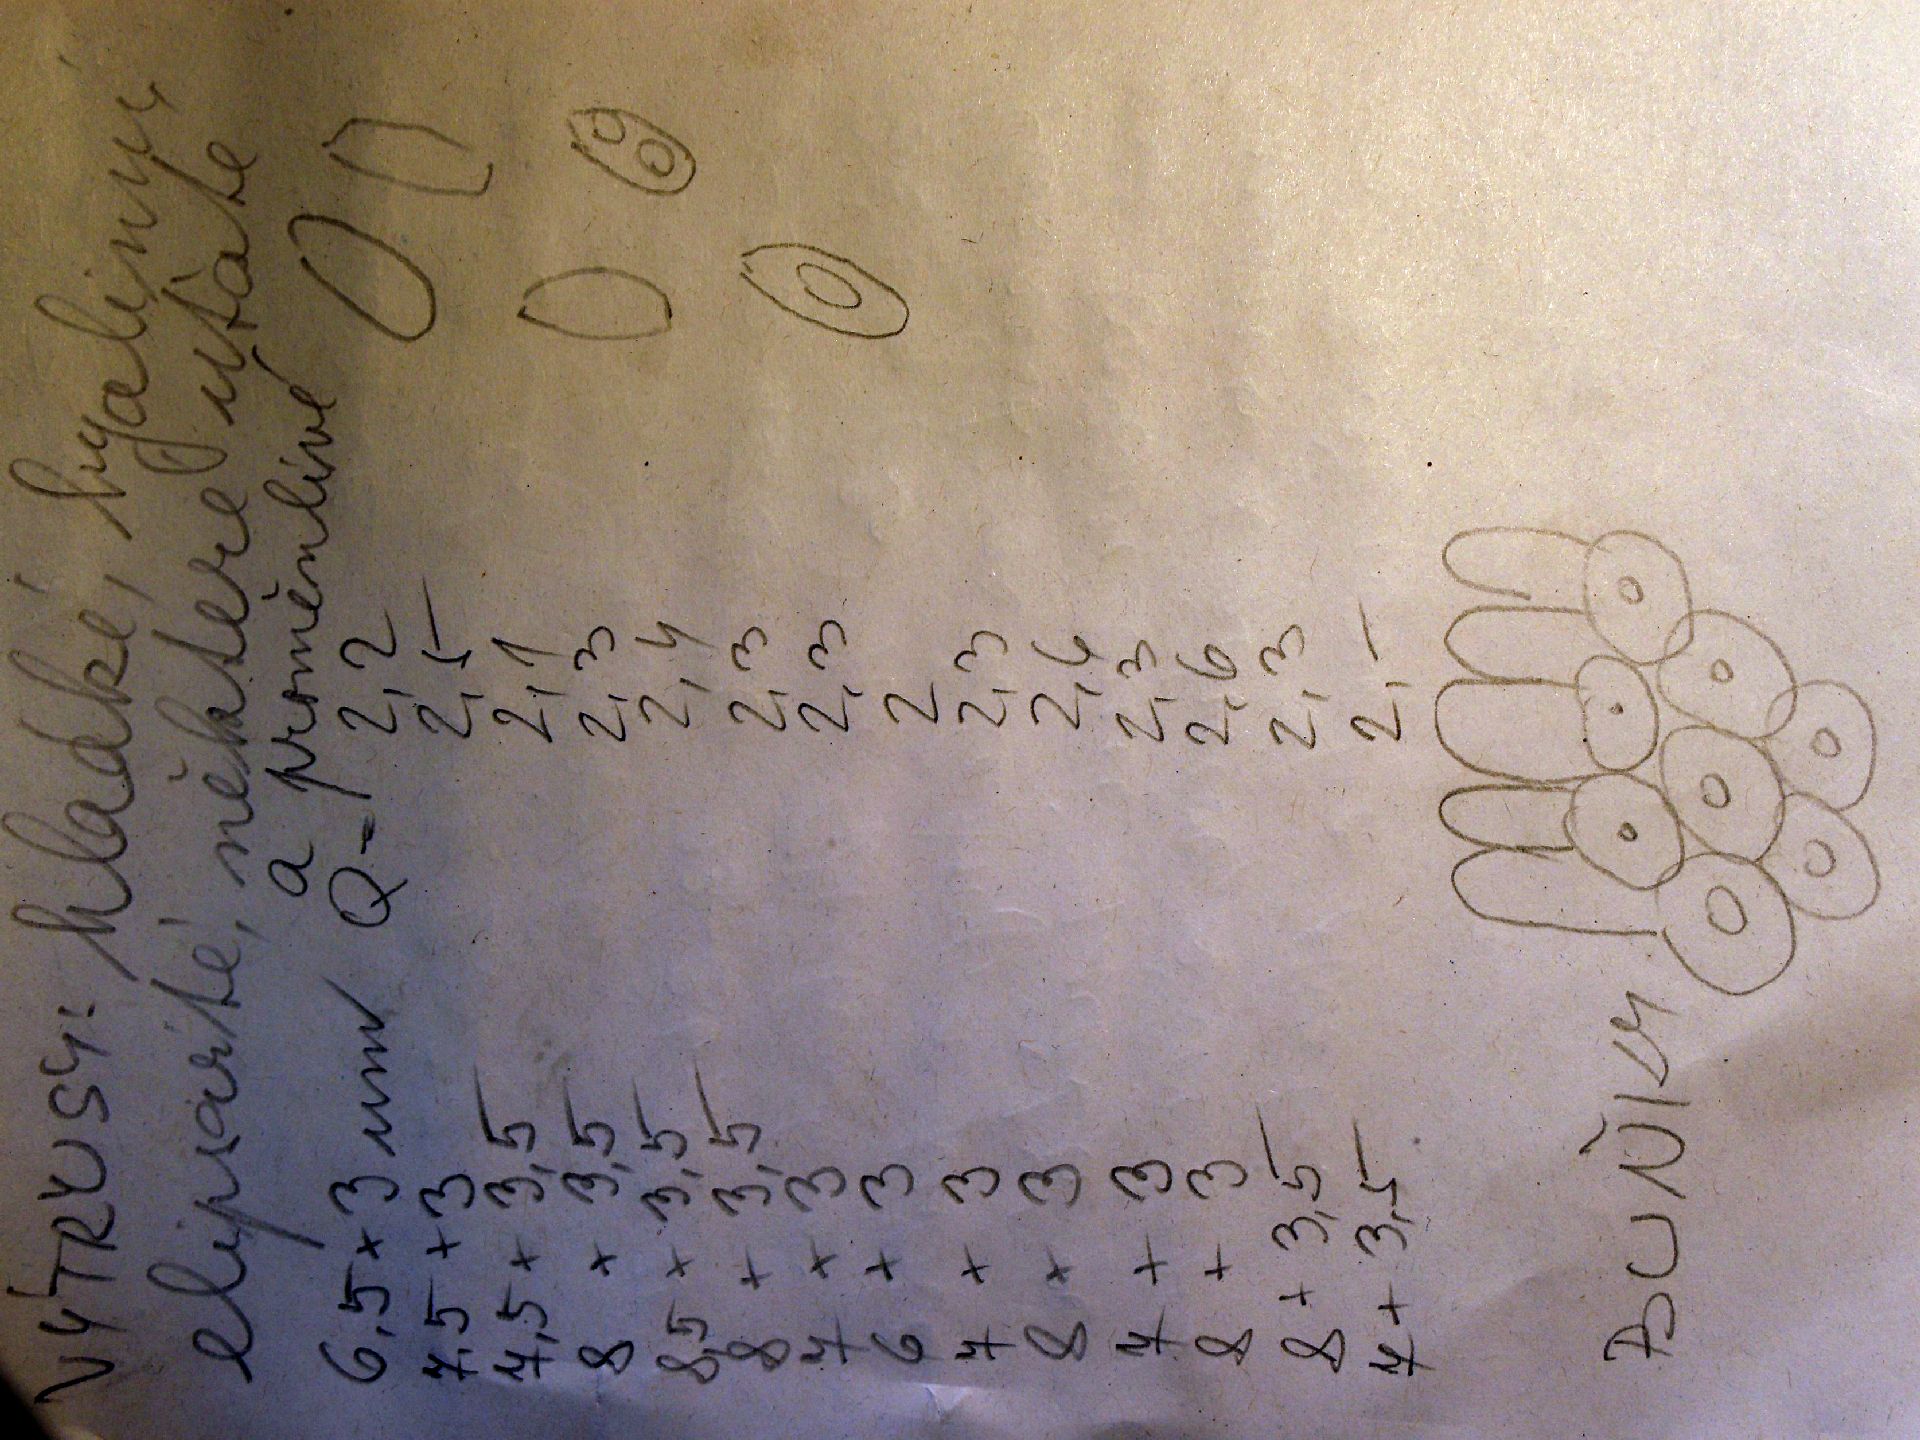 VÝTRUSY: hladké, hyalinny
elipsarté, některé uťaté
a proměnlivé
6,5 x 3 um Q - 2,2
7,5 x 3 2,5
7,5 x 3,5 2,1
8 x 3,5 2,3
8,5 x 3,5 2,4
8 x 3,5 2,3
7 x 3 2,3
6 x 3 2
7 x 3 2,3
8 x 3 2,6
7 x 3 2,3
8 + 3 2,6
8 + 3,5 2,3
7 + 3,5 2,-
BUŇKY